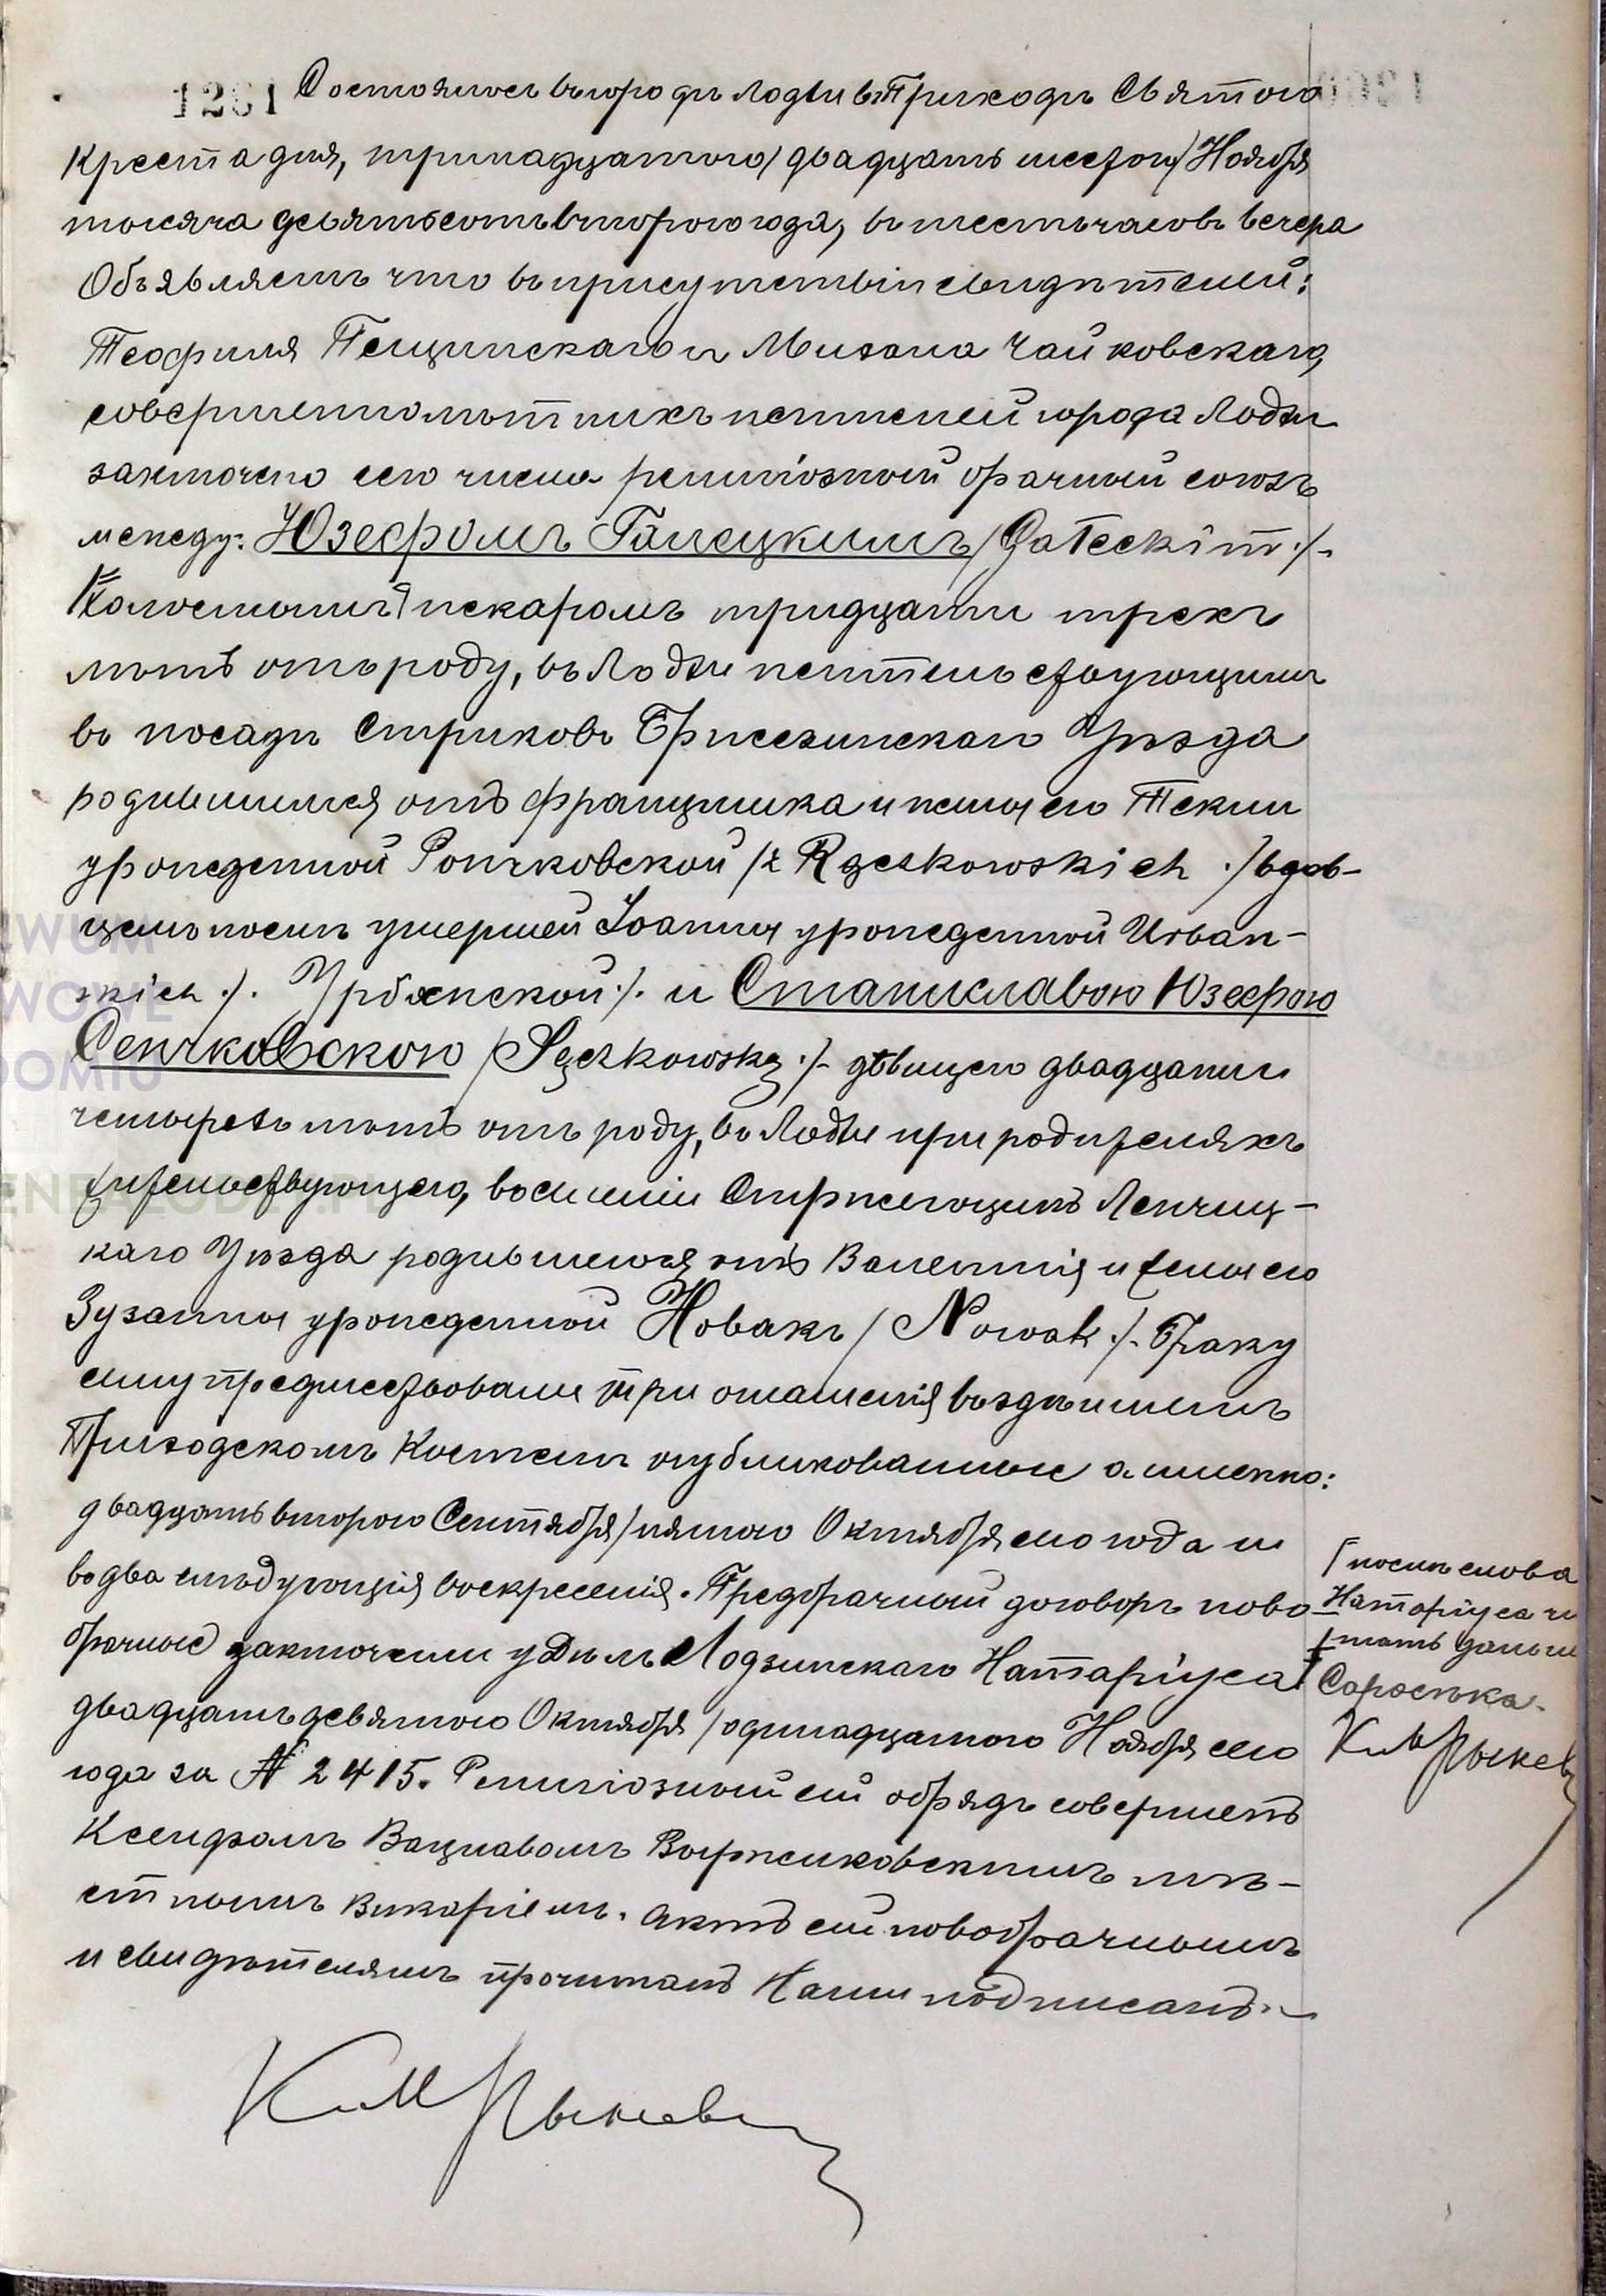 1261 Состоялось въ городѣ Лодзи въ Приходѣ Святого
Креста дня, тринадцатого/двадцать шестого/Ноября
тысяча девятьсотъ второго года, въ шесть часовъ вечера
Объявляемъ что въ присутствіи свидѣтелей:
Теофиля и Чайковскаго,
совершеннолѣтнихъ жителей города Лодзи
заключенъ сего числа религіозный брачный союзъ
между: Юзефомъ Галецкимъ /Gałeckim ./-
Холостымъ пекаромъ тридцати трехъ
лѣтъ отъ роду, въ Лодзи жительствующимъ
въ посадѣ Стриковъ Бржезинскаго Уѣзда
родившимся отъ Францишка и жены его Текли
урожденной Рончковской /z Rączkowskich ./ вдов-
цемъ послѣ умершей Іоанны урожденной Urban-
skich ./. Урбанской ./. и Станиславою Юзефою
Сенчковскою /Sęczkowską ./- дѣвицею двадцати
четырехъ лѣтъ отъ роду, въ Лодзи при родителяхъ
жительствующею, въ имѣніи Ленчиц-
каго Уѣзда родившеюся отъ Валентія и жены его
Зузанны урожденной Новакъ /Nowak ./. Браку
сему предшествовали три оглашенія въ здѣшнемъ
Приходскомъ Костелѣ опубликованныя а именно:
двадцать второго Сентября/пятого Октября сего года и
въ два слѣдующія воскресенія. Предбрачный договоръ ново
брачные заключили у Дѣлъ Лодзинскаго Натаріуса
двадцать девятого Октября/одинадцатого Ноября сего
года за № 2415. Религіозный сей обрядъ совершенъ
Ксендзомъ Вацлавомъ Выржиковскимъ мѣ-
стнымъ Викаріемъ. Актъ сей новобрачнымъ
и свидѣтелямъ прочитанъ Нами подписанъ.
послѣ слова
Натаріуса чи
тать дальше